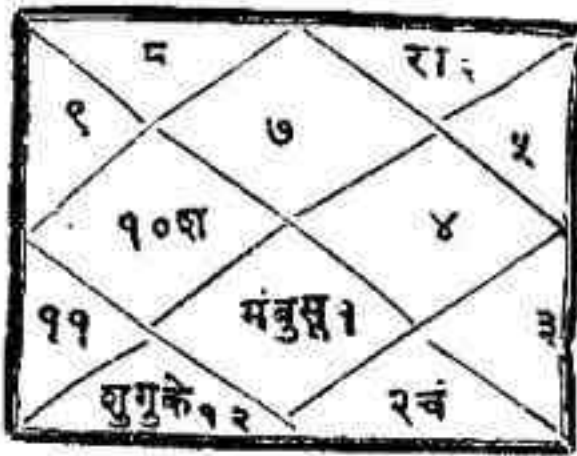 ८ रा ६
९ ७ ५
१०श ४
११ मंबुसू१ ३
शुगुके१२ २चं